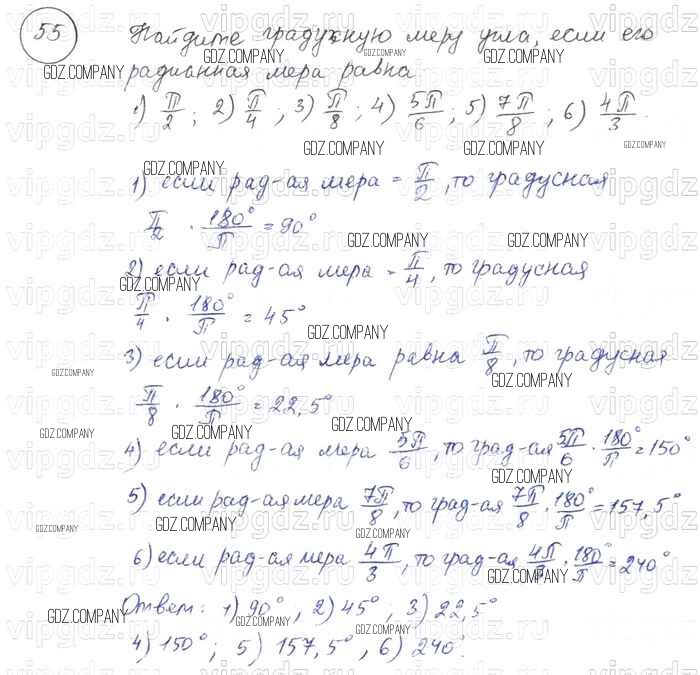 55 Найдите градусную меру угла, если его
радианная мера равна
1) π/2; 2) π/4; 3) π/8; 4) 5π/6; 5) 7π/8; 6) 4π/3.
1) если рад-ая мера = π/2, то градусная
π/2 · 180°/π = 90°
2) если рад-ая мера = π/4, то градусная
π/4 · 180°/π = 45°
3) если рад-ая мера равна π/8, то градусная
π/8 · 180°/π = 22,5°
4) если рад-ая мера 5π/6, то град-ая 5π/6 · 180°/π = 150°
5) если рад-ая мера 7π/8, то град-ая 7π/8 · 180°/π = 157,5°
6) если рад-ая мера 4π/3, то град-ая 4π/3 · 180°/π = 240°
Ответ: 1) 90°, 2) 45°; 3) 22,5°
4) 150°; 5) 157,5°, 6) 240°.
GDZ.COMPANY
vipgdz.ru